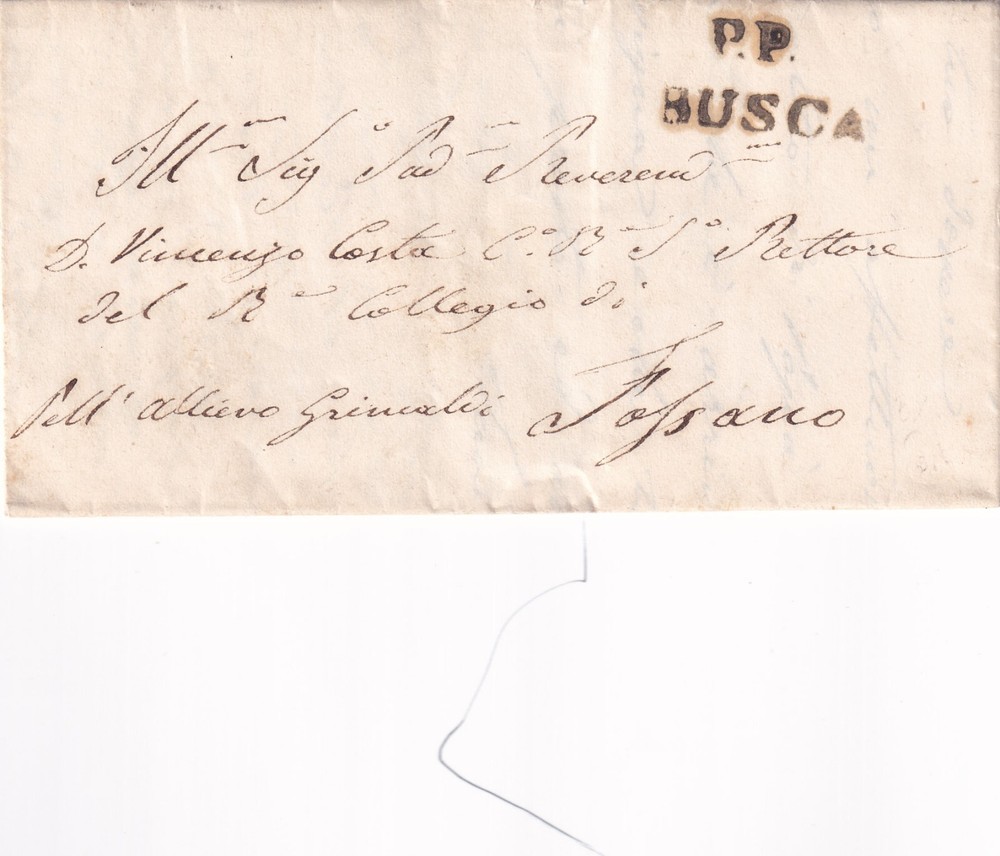 P.P.
BUSCA
Ill.mo Sig.o Pad.ne Reverend.mo
D. Vincenzo Costa C.o R.e S.o Rettore
del R.o Collegio di
Pell' allievo Grimaldi Fossano